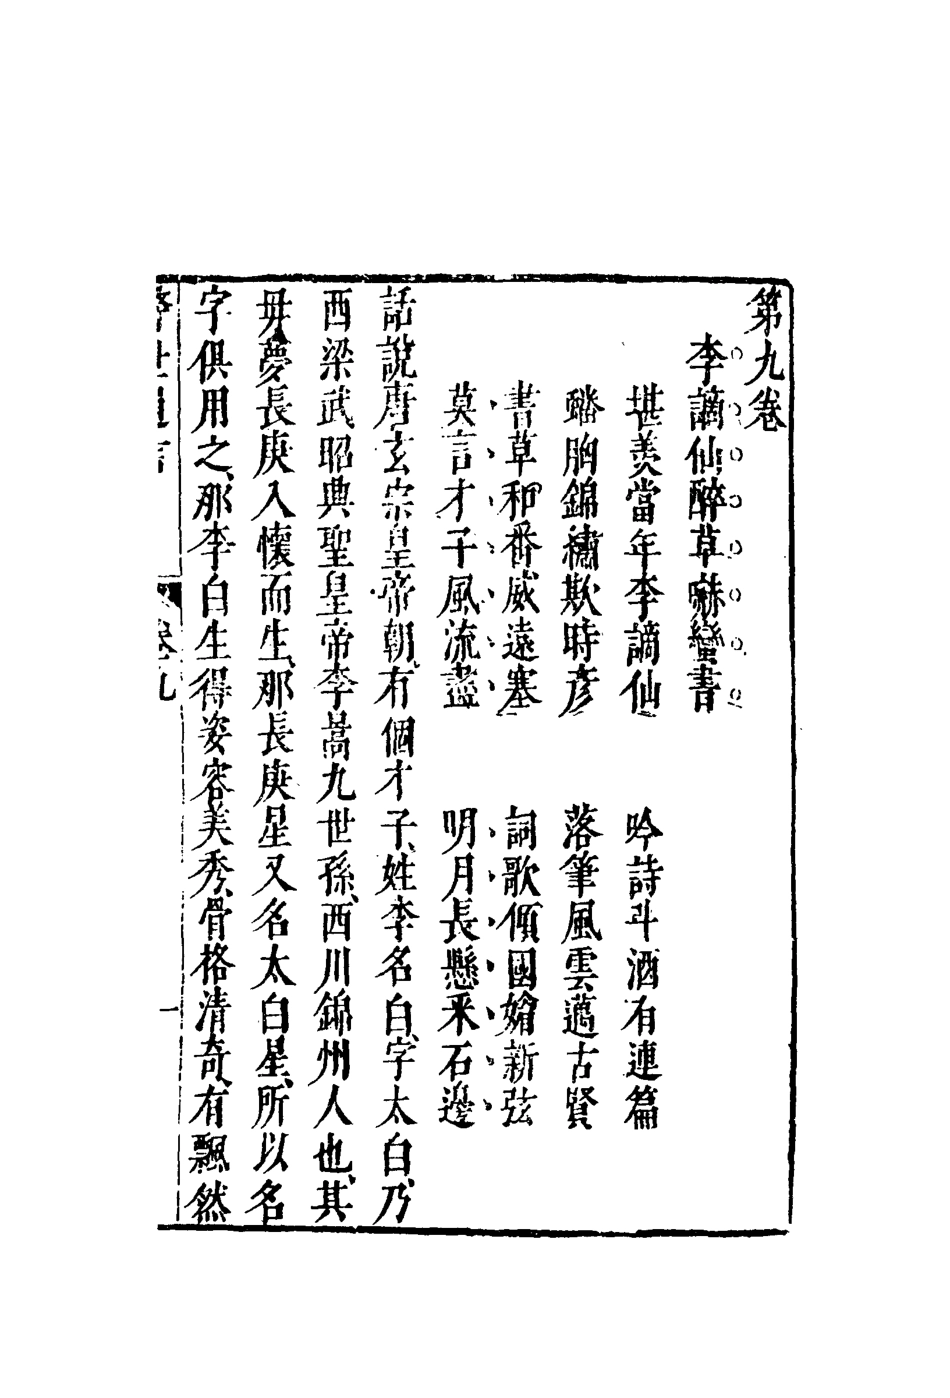 第九卷
李謫仙醉草嚇蠻書
堪羨當年李謫仙　吟詩斗酒有連篇
蟠胸錦繡欺時彥　落筆風雲邁古賢
書草和番威遠塞　詞歌傾國媚新弦
莫言才子風流盡　明月長懸采石邊
話說唐玄宗皇帝朝、有個才子、姓李名白、字太白、乃
西梁武昭興聖皇帝李暠九世孫、西川錦州人也、其
母夢長庚入懷而生、那長庚星又名太白星、所以名
字俱用之、那李白生得姿容美秀、骨格清奇、有飄然
警世通言　卷九　一